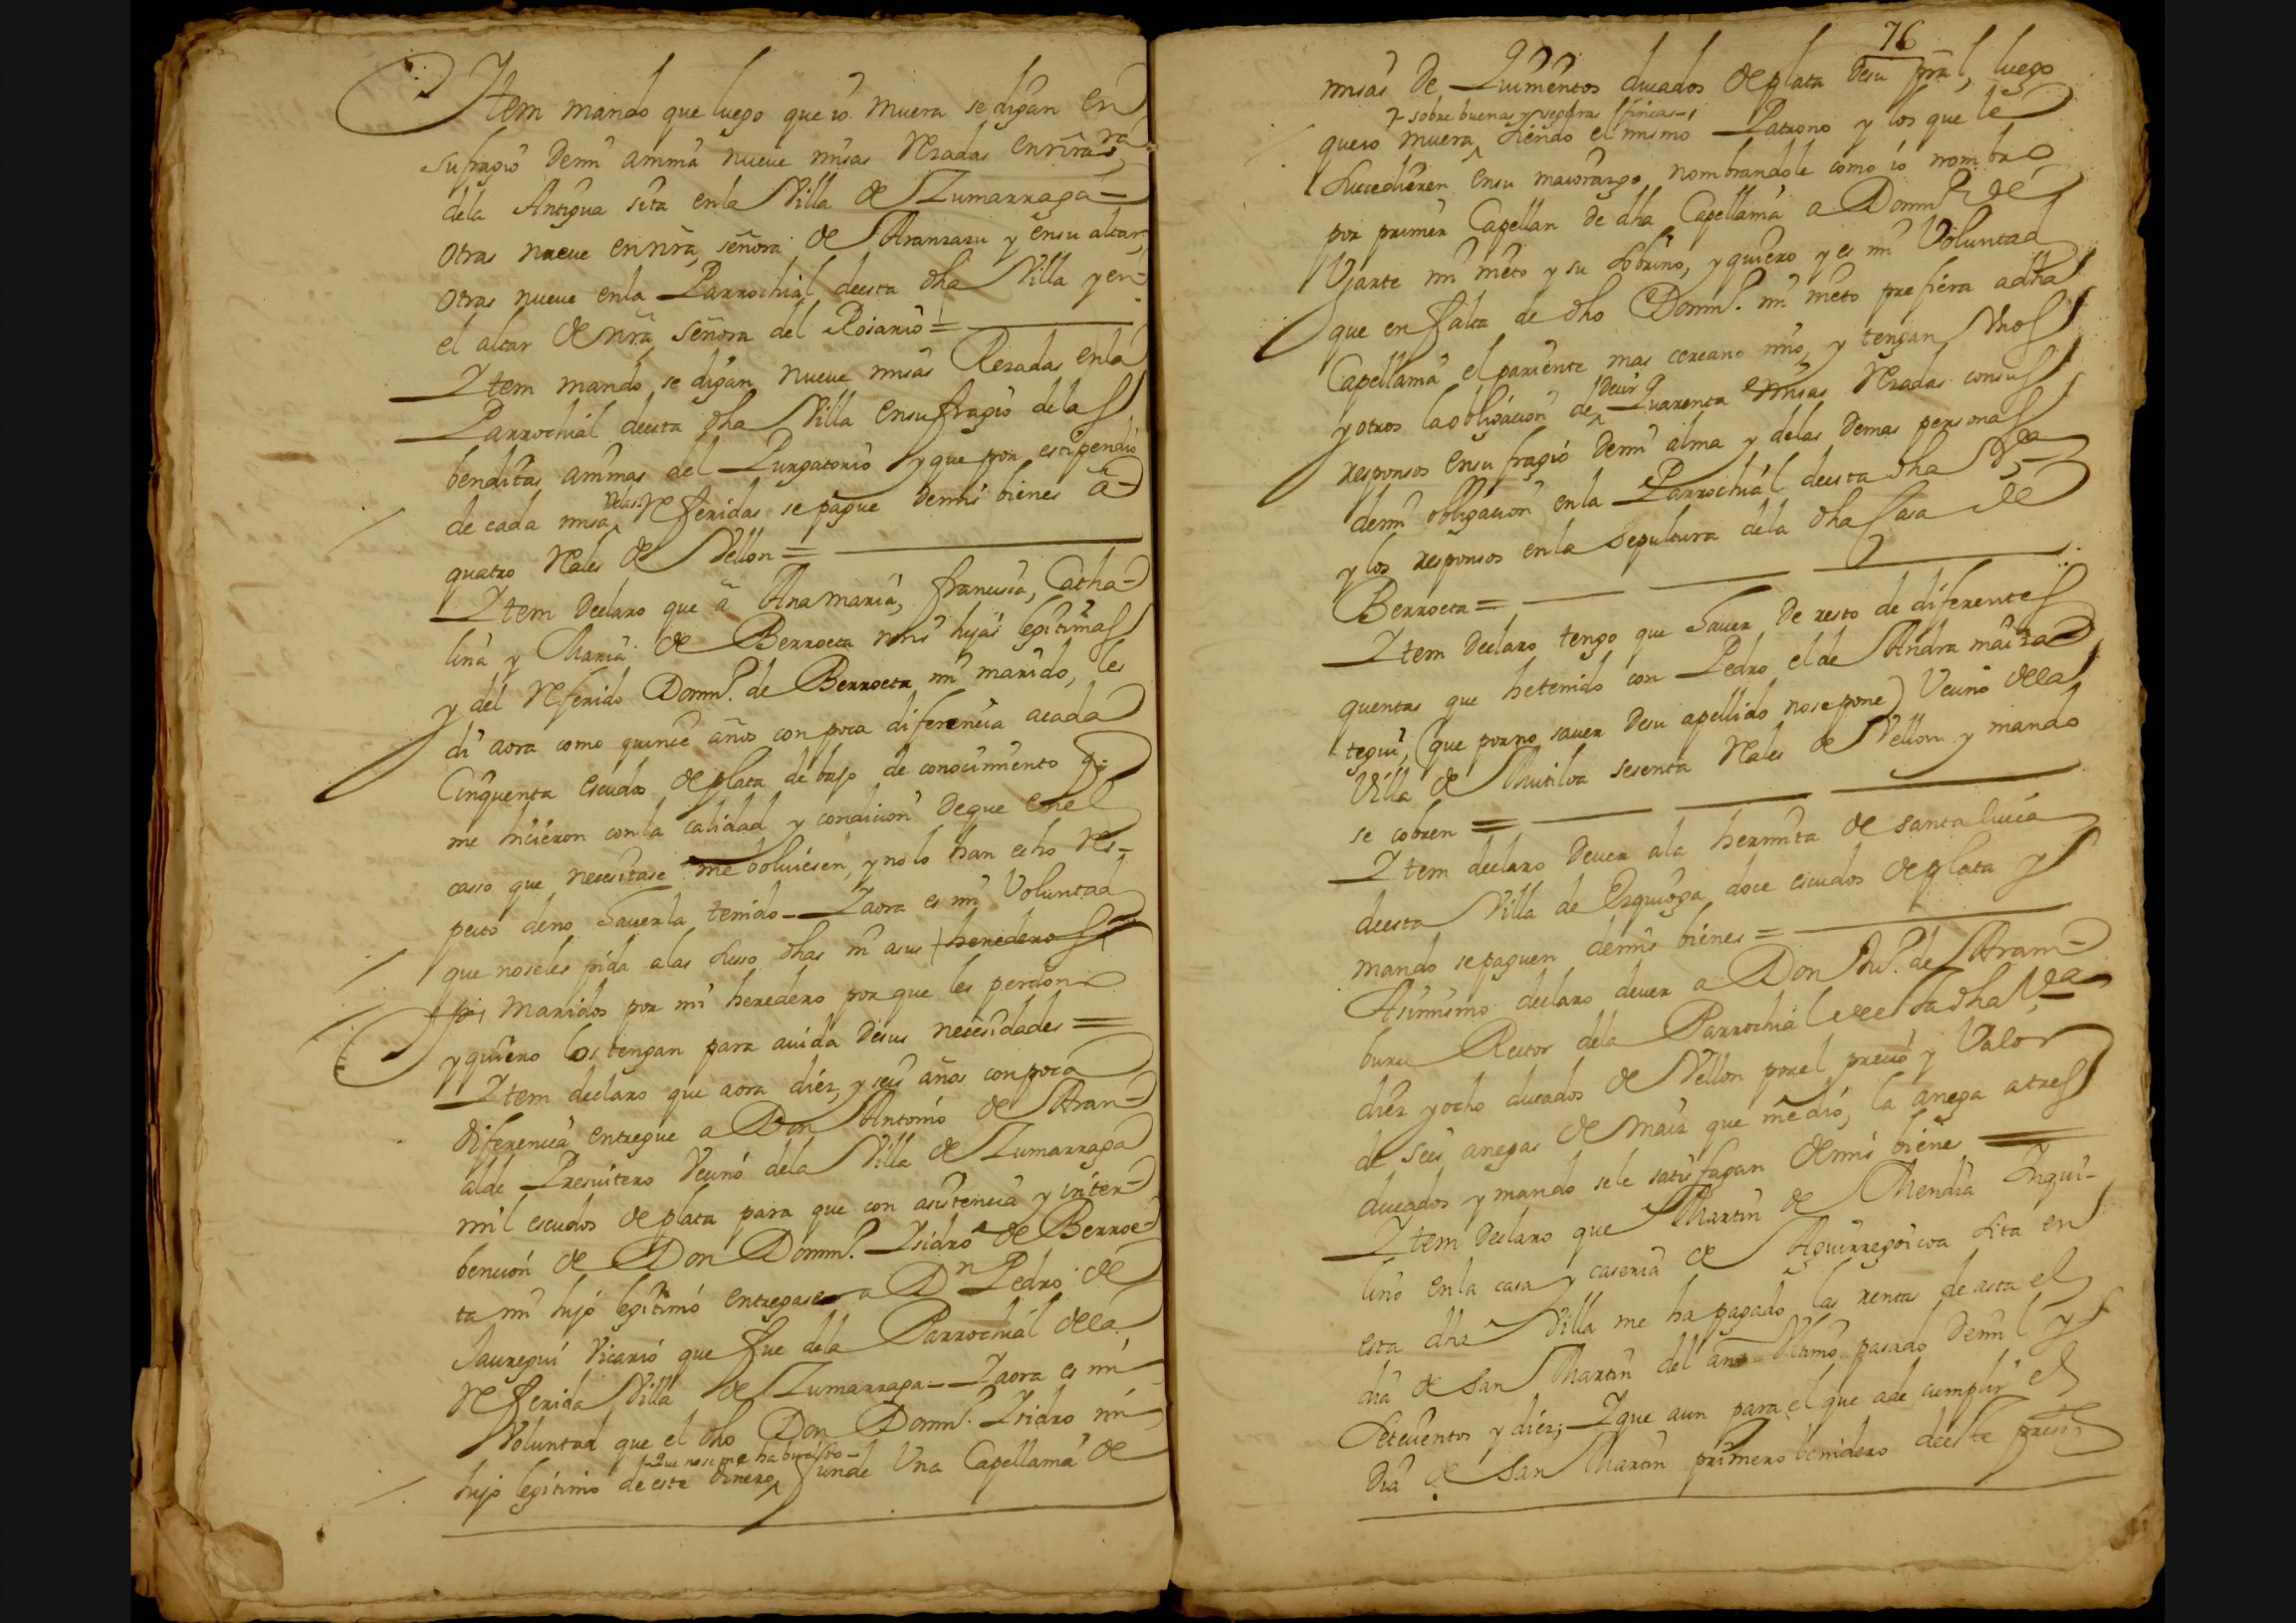 Item mando que luego que io muera se digan en
sufragio demi anima nueve misas Rezadas en nrã srã
dela Antigua sita enla Villa de Zumarraga =
otras nueve en nrã señora de Aranzazu y ensu altar,
otras nueve enla Parrochial deesta dha Villa y en
el altar de nrã señora del Rosario =
Item mando se digan nueve misas Rezadas enla
Parrochial deesta dha Villa ensufragio delas
benditas animas del Purgatorio y que por estipendio
de cada misa delas Referidas se pague demis bienes â
quatro Rales de Vellon =
Item Declaro que â Ana maria, francisca, Catha-
lina y Maria de Berroeta mis hijas legitimas
y del Referido Domin.º de Berroeta mi marido, les
di aora como quince años con poca diferencia acada
Cinquenta escudos de plata debajo de conocimiento q.e
me hicieron con la calidad y condicion deque enel
casso que necesitase me bolviesen, y no lo han echo Res-
pecto deno haverla tenido - Yaora es mi Voluntad
que noseles pida alas susso dhas ni asus herederos
ni maridos por mi heredero por que les perdono
y quiero los tengan para aiuda desus necesidades =
Item declaro que aora diez y seis años con poca
diferencia entregue a Don Antonio de Aran-
alde Presvitero Vecino dela Villa de Zumarraga
mil escudos de plata para que con asistencia y inter-
bencion de Don Domin.º Isidro de Berroe-
ta mi hijo legitimo entregase a Dn Pedro de
Jauregui Vicario que fue dela Parrochial dela
Referida Villa de Zumarraga - Yaora es mi
Voluntad que el dho Don Domin.º Isidro mi
-que nose me ha buelto-
hijo legitimo de este dinero funde Una Capellania de
76
misas de Quinientos ducados de plata desu prãl, luego
sobre buenas y seguras fincas
queio muera siendo el mismo Patrono y los que le
sucedieren ensu maiorazgo, nombrandole como io nombro
por primer Capellan de dha Capellania a Domin.º de
Ugarte mi nieto y su sobrino, y quiero y es mi Voluntad
que en falta de dho Domin.º mi nieto prefiera adha
Capellania el pariente mas cercano mio, y tengan Unos
y otros la obligacion de decir Quarenta misas Rezadas consus
responsos ensufragio demi alma y delas demas personas
demi obligacion enla Parrochial deesta dha V.ª
y los responsos enla sepultura dela dha Casa de
Berroeta =
Item Declaro tengo que haver de resto de diferentes
quentas que hetenido con Pedro el de Andra maiza-
tegui, (que porno saver desu apellido nose pone) Vecino dela
Villa de Mutiloa sesenta Rales de Vellon y mando
se cobren =
Item declaro dever ala hermita de santa lucia
deesta Villa de Ezquioga doce escudos de plata y
mando sepaguen demis bienes =
Asimismo declaro dever a Don Ju.º de Aram-
buru Rector dela Parrochial deesta dha V.ª
diez y ocho ducados de Vellon porel precio y Valor
de seis anegas de maiz que me dió, la anega atres
ducados y mando sele satisfagan demis bienes
Item Declaro que Martin de Mendia Inqui-
lino enla casa y caseria de Aguirregoicoa sita en
esta dha Villa me ha pagado las rentas de asta el
dia de San Martin del año Ultimo pasado demil y
Setecientos y diez; Yque aun para el que ade cumplir el
Dia de San Martin primero benidero deeste press.te